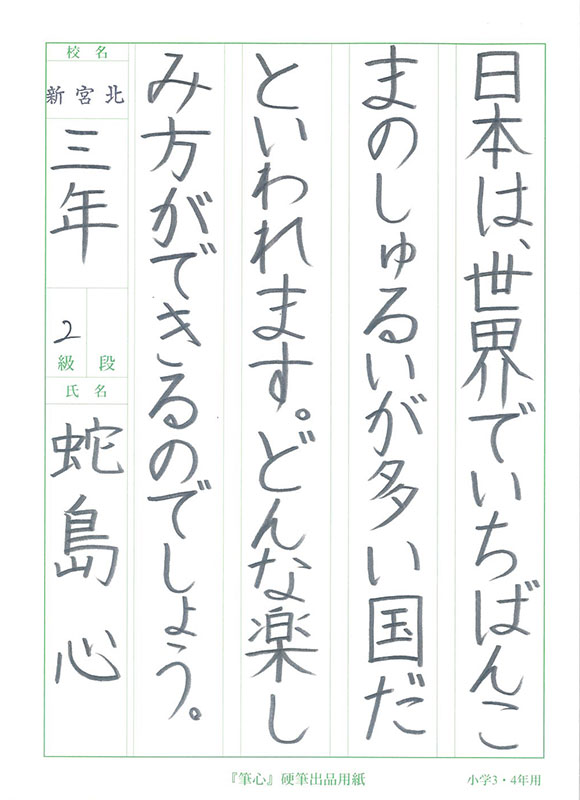 日本は、世界でいちばんこ
まのしゅるいが多い国だ
といわれます。どんな楽し
み方ができるのでしょう。
校名
新宮北
三年
2
級 段
氏名
蛇島 心
『筆心』硬筆出品用紙
小学3・4年用